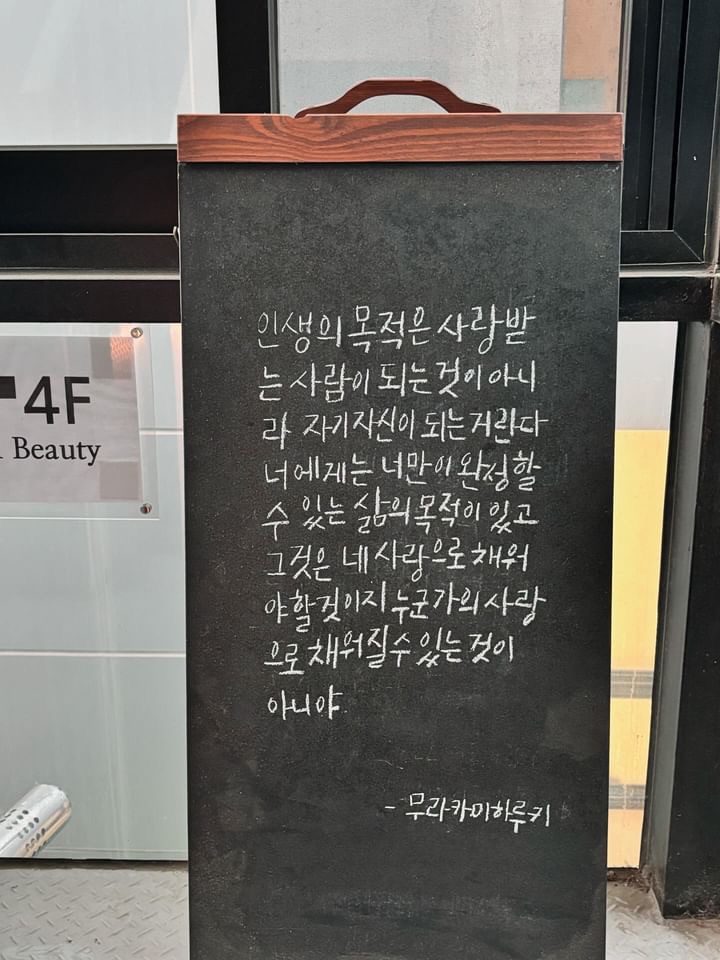 4F
Beauty
인생의 목적은 사랑받
는 사람이 되는것이 아니
라 자기자신이 되는거란다
너에게는 너만이 완성할
수 있는 삶의 목적이 있고
그것은 네 사랑으로 채워
야할것이지 누군가의 사랑
으로 채워질수 있는 것이
아니야
- 무라카미하루키